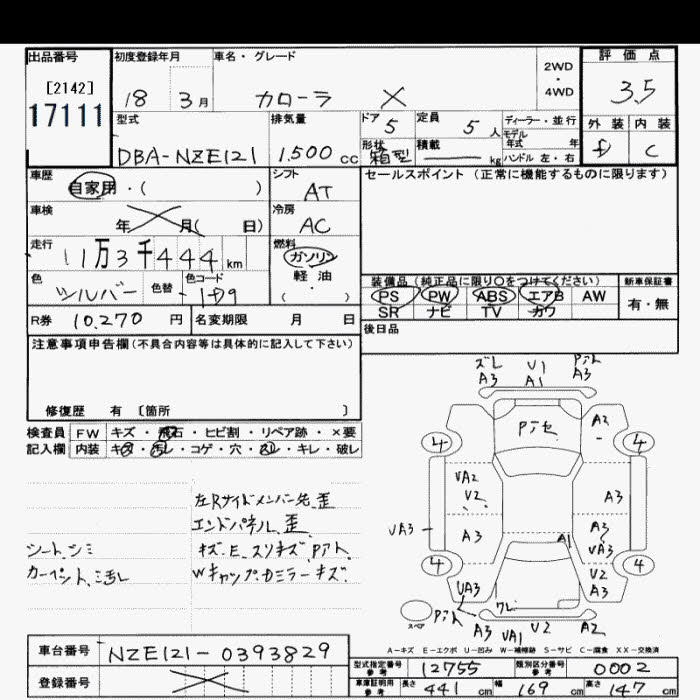 出品番号 初度登録年月 車名・グレード 2WD・4WD 評価点
[2142]
17111 18 3月 カローラ X 3.5
型式 排気量 ドア 5 定員 5人 ディーラー・並行 外装 内装
DBA-NZE121 1.500cc 形状 箱型 積載 kg モデル年式 年 ハンドル 左・右 C
車歴 自家用・( ) シフト AT セールスポイント(正常に機能するものに限ります)
車検 年 月( 日) 冷房 AC
走行 11万3千444km 燃料 ガソリン 軽油 ( )
色 シルバー 色替 - 色コード
装備品(純正品に限り○をつけてください) 新車保証書
PS PW ABS エアB AW 有・無
SR ナビ TV カワ
R券 10.270円 名変期限 月 日 後日品
注意事項申告欄(不具合内容等は具体的に記入して下さい)
修復歴 有 [箇所 ]
検査員 FW キズ・飛石・ヒビ割・リペア跡・×要
記入欄 内装 キズ・汚レ・コゲ・穴・スレ・キレ・破レ
左Rサイドメンバー先、歪
エンドパネル、歪
シート、シミ キズ、E、スリキズ、Pアト、
カーペット、汚レ Wキャップ、ドミラーキズ、
ズレ V1 Pアト
A3 A1 A3
Pアセ A2
4 4
VA2
V2 A3
VA3 A3 A1 A3
VA3
4 4
V2
VA3 ワレ A3
スペア Pアト A3 VA1 V2 A2
A-キズ E-エクボ U-凹み W-補修跡 S-サビ C-腐食 XX-交換済
車台番号 NZE121-0393829
登録番号
型式指定番号 参考 12755 類別区分番号 参考 0002
車庫証明用 参考 長さ 441cm 幅 169cm 高さ 147cm